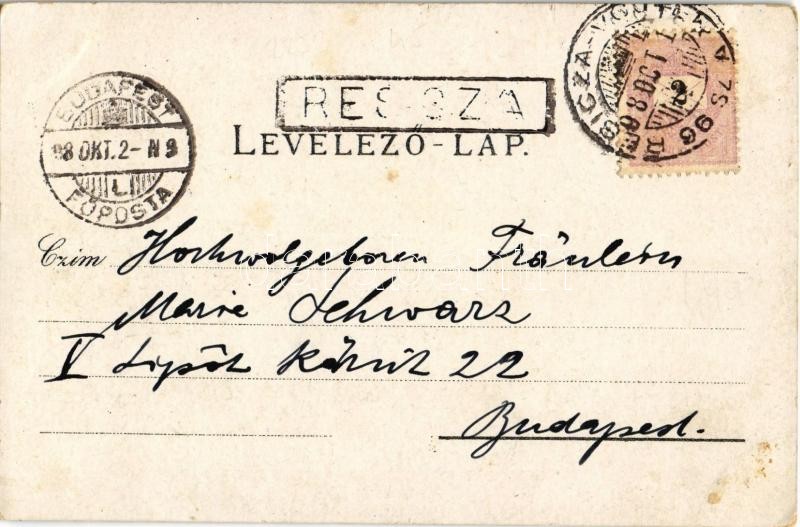 BUDAPEST
98 OKT. 2- N 9
L.
FŐPOSTA
RESICZA
LEVELEZŐ-LAP.
2
Czim Hochwolgeboren Fräulein
Marie Schwarz
V Lipót Körút 22
Budapest.